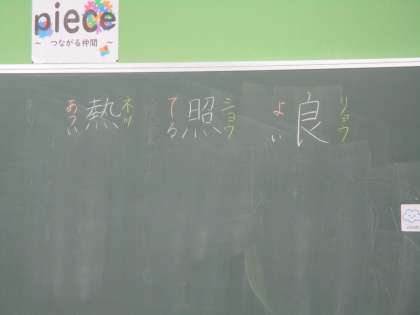 piece
～つながる仲間～
リョウ
良
よい
ショウ
照
てる
ネツ
熱
あつい